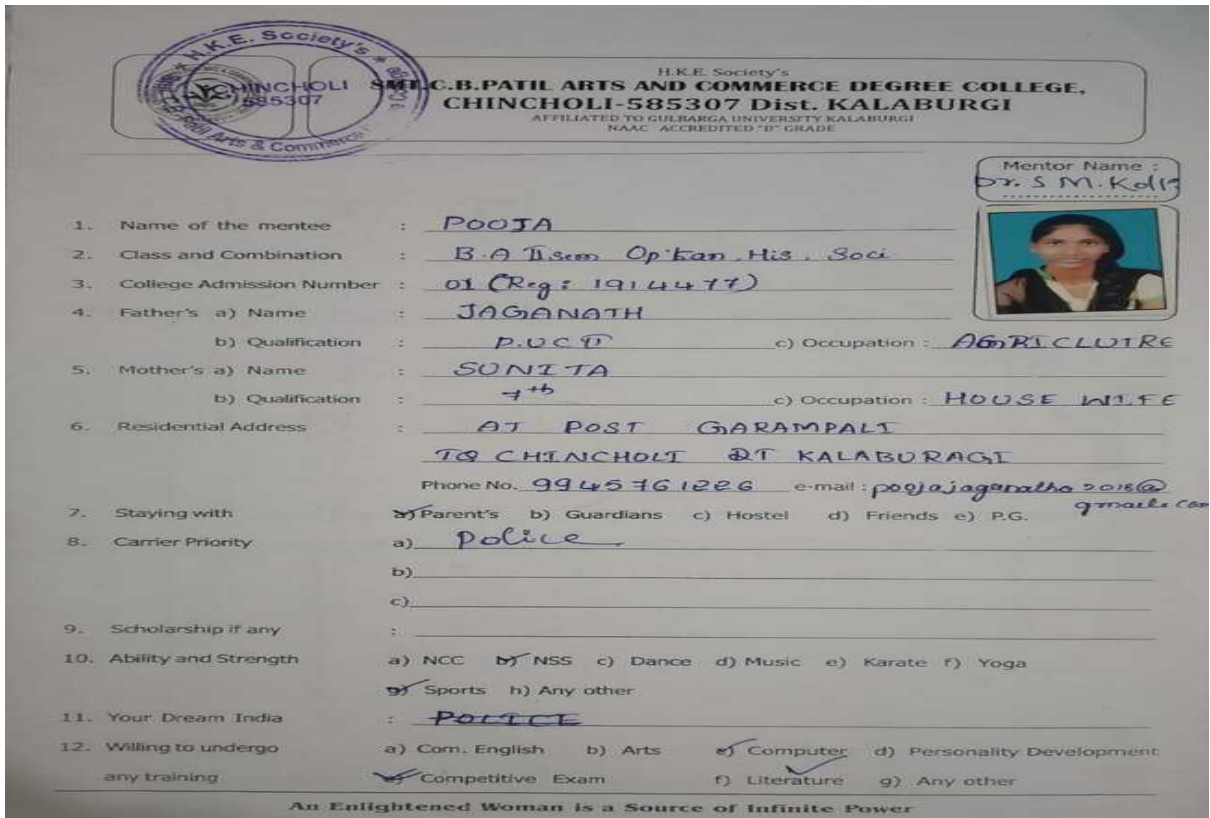 H.K.E. Society's
CHINCHOLI
585307
Arts & Commerce
H.K.E. Society's
SMT.C.B.PATIL ARTS AND COMMERCE DEGREE COLLEGE,
CHINCHOLI-585307 Dist. KALABURGI
AFFILIATED TO GULBARGA UNIVERSITY KALABURGI
NAAC ACCREDITED "B" GRADE
Mentor Name :
Dr. S M.
1. Name of the mentee : POOJA
2. Class and Combination : B.A II sem Op.Kan. His. Soci
3. College Admission Number : 01 (Reg: 1914477)
4. Father's a) Name : JAGANATH
b) Qualification : P.U C II c) Occupation : AGRICLUTRE
5. Mother's a) Name : SUNITA
b) Qualification : 7th c) Occupation : HOUSE WIFE
6. Residential Address : AT POST GARAMPALI
TQ CHINCHOLI DT KALABURAGI
Phone No. 9945761226 e-mail : poojajaganatha2018@
gmail.com
7. Staying with a) Parent's b) Guardians c) Hostel d) Friends e) P.G.
8. Carrier Priority a) Police
b)
c)
9. Scholarship if any :
10. Ability and Strength a) NCC b) NSS c) Dance d) Music e) Karate f) Yoga
g) Sports h) Any other
11. Your Dream India : POLICE
12. Willing to undergo a) Com. English b) Arts c) Computer d) Personality Development
any training e) Competitive Exam f) Literature g) Any other
An Enlightened Woman is a Source of Infinite Power